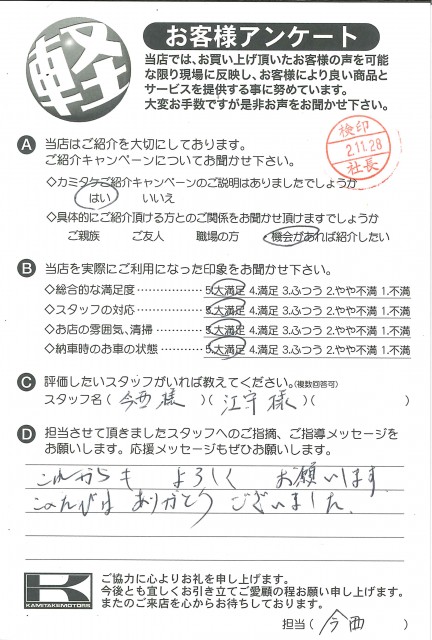 軽
お客様アンケート
当店では、お買い上げ頂いたお客様の声を可能
な限り現場に反映し、お客様により良い商品と
サービスを提供する事に努めています。
大変お手数ですが是非お声をお聞かせ下さい。
検印
2.11.28
社長
A 当店はご紹介を大切にしております。
ご紹介キャンペーンについてお聞かせ下さい。
◇カミタケご紹介キャンペーンのご説明はありましたでしょうか
はい いいえ
◇具体的にご紹介頂ける方とのご関係をお聞かせ頂けますでしょうか
ご親族 ご友人 職場の方 機会があれば紹介したい
B 当店を実際にご利用になった印象をお聞かせ下さい。
◇総合的な満足度 ・・・・・・・・・・・・・・ 5.大満足 4.満足 3.ふつう 2.やや不満 1.不満
◇スタッフの対応 ・・・・・・・・・・・・・・ 5.大満足 4.満足 3.ふつう 2.やや不満 1.不満
◇お店の雰囲気、清掃 ・・・・・・・・・ 5.大満足 4.満足 3.ふつう 2.やや不満 1.不満
◇納車時のお車の状態 ・・・・・・・・ 5.大満足 4.満足 3.ふつう 2.やや不満 1.不満
C 評価したいスタッフがいれば教えてください。(複数回答可)
スタッフ名( 今西様 )( 江守様 )( )
D 担当させて頂きましたスタッフへのご指摘、ご指導メッセージを
お願いします。応援メッセージもぜひお願いします。
これからも よろしく お願いします
このたびは ありがとう ございました。
K
KAMITAKE MOTORS
ご協力に心よりお礼を申し上げます。
今後とも宜しくお引き立てご愛顧の程お願い申し上げます。
またのご来店を心からお待ちしております。
担当( 今西 )